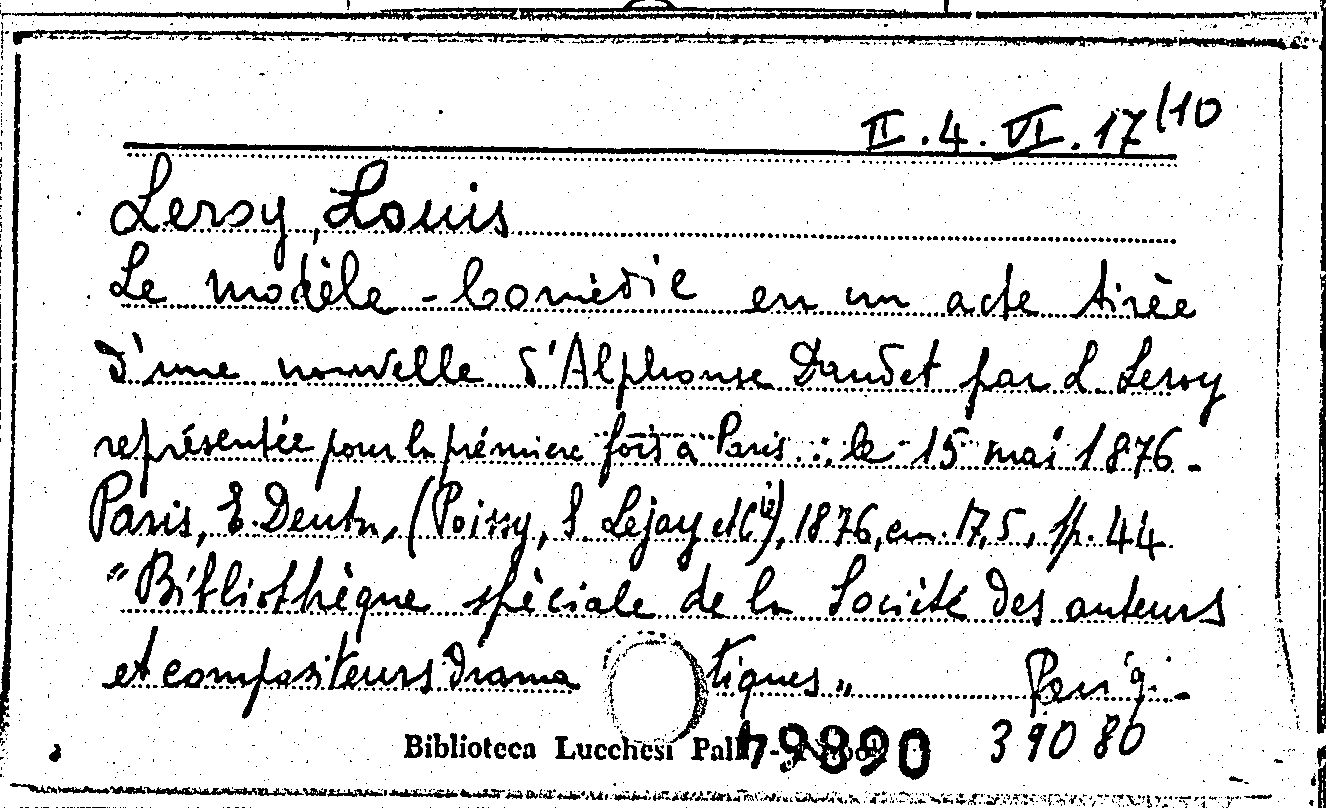 II.4.VI.17/10
Leroy, Louis
Le modèle - Comèdie en un acte tirèe
d'une nouvelle d'Alphonse Daudet par L. Leroy
représentée pour la prémiere fois a Paris .: le 15 mai 1876.
Paris, E. Dentu, (Poissy, S. Lejay et Cie), 1876, cm. 17,5, pp. 44
"Bibliothèque spèciale de la Société des auteurs
et compositeurs drama tiques"
Biblioteca Lucchesi Palli - Napoli
49890 39080